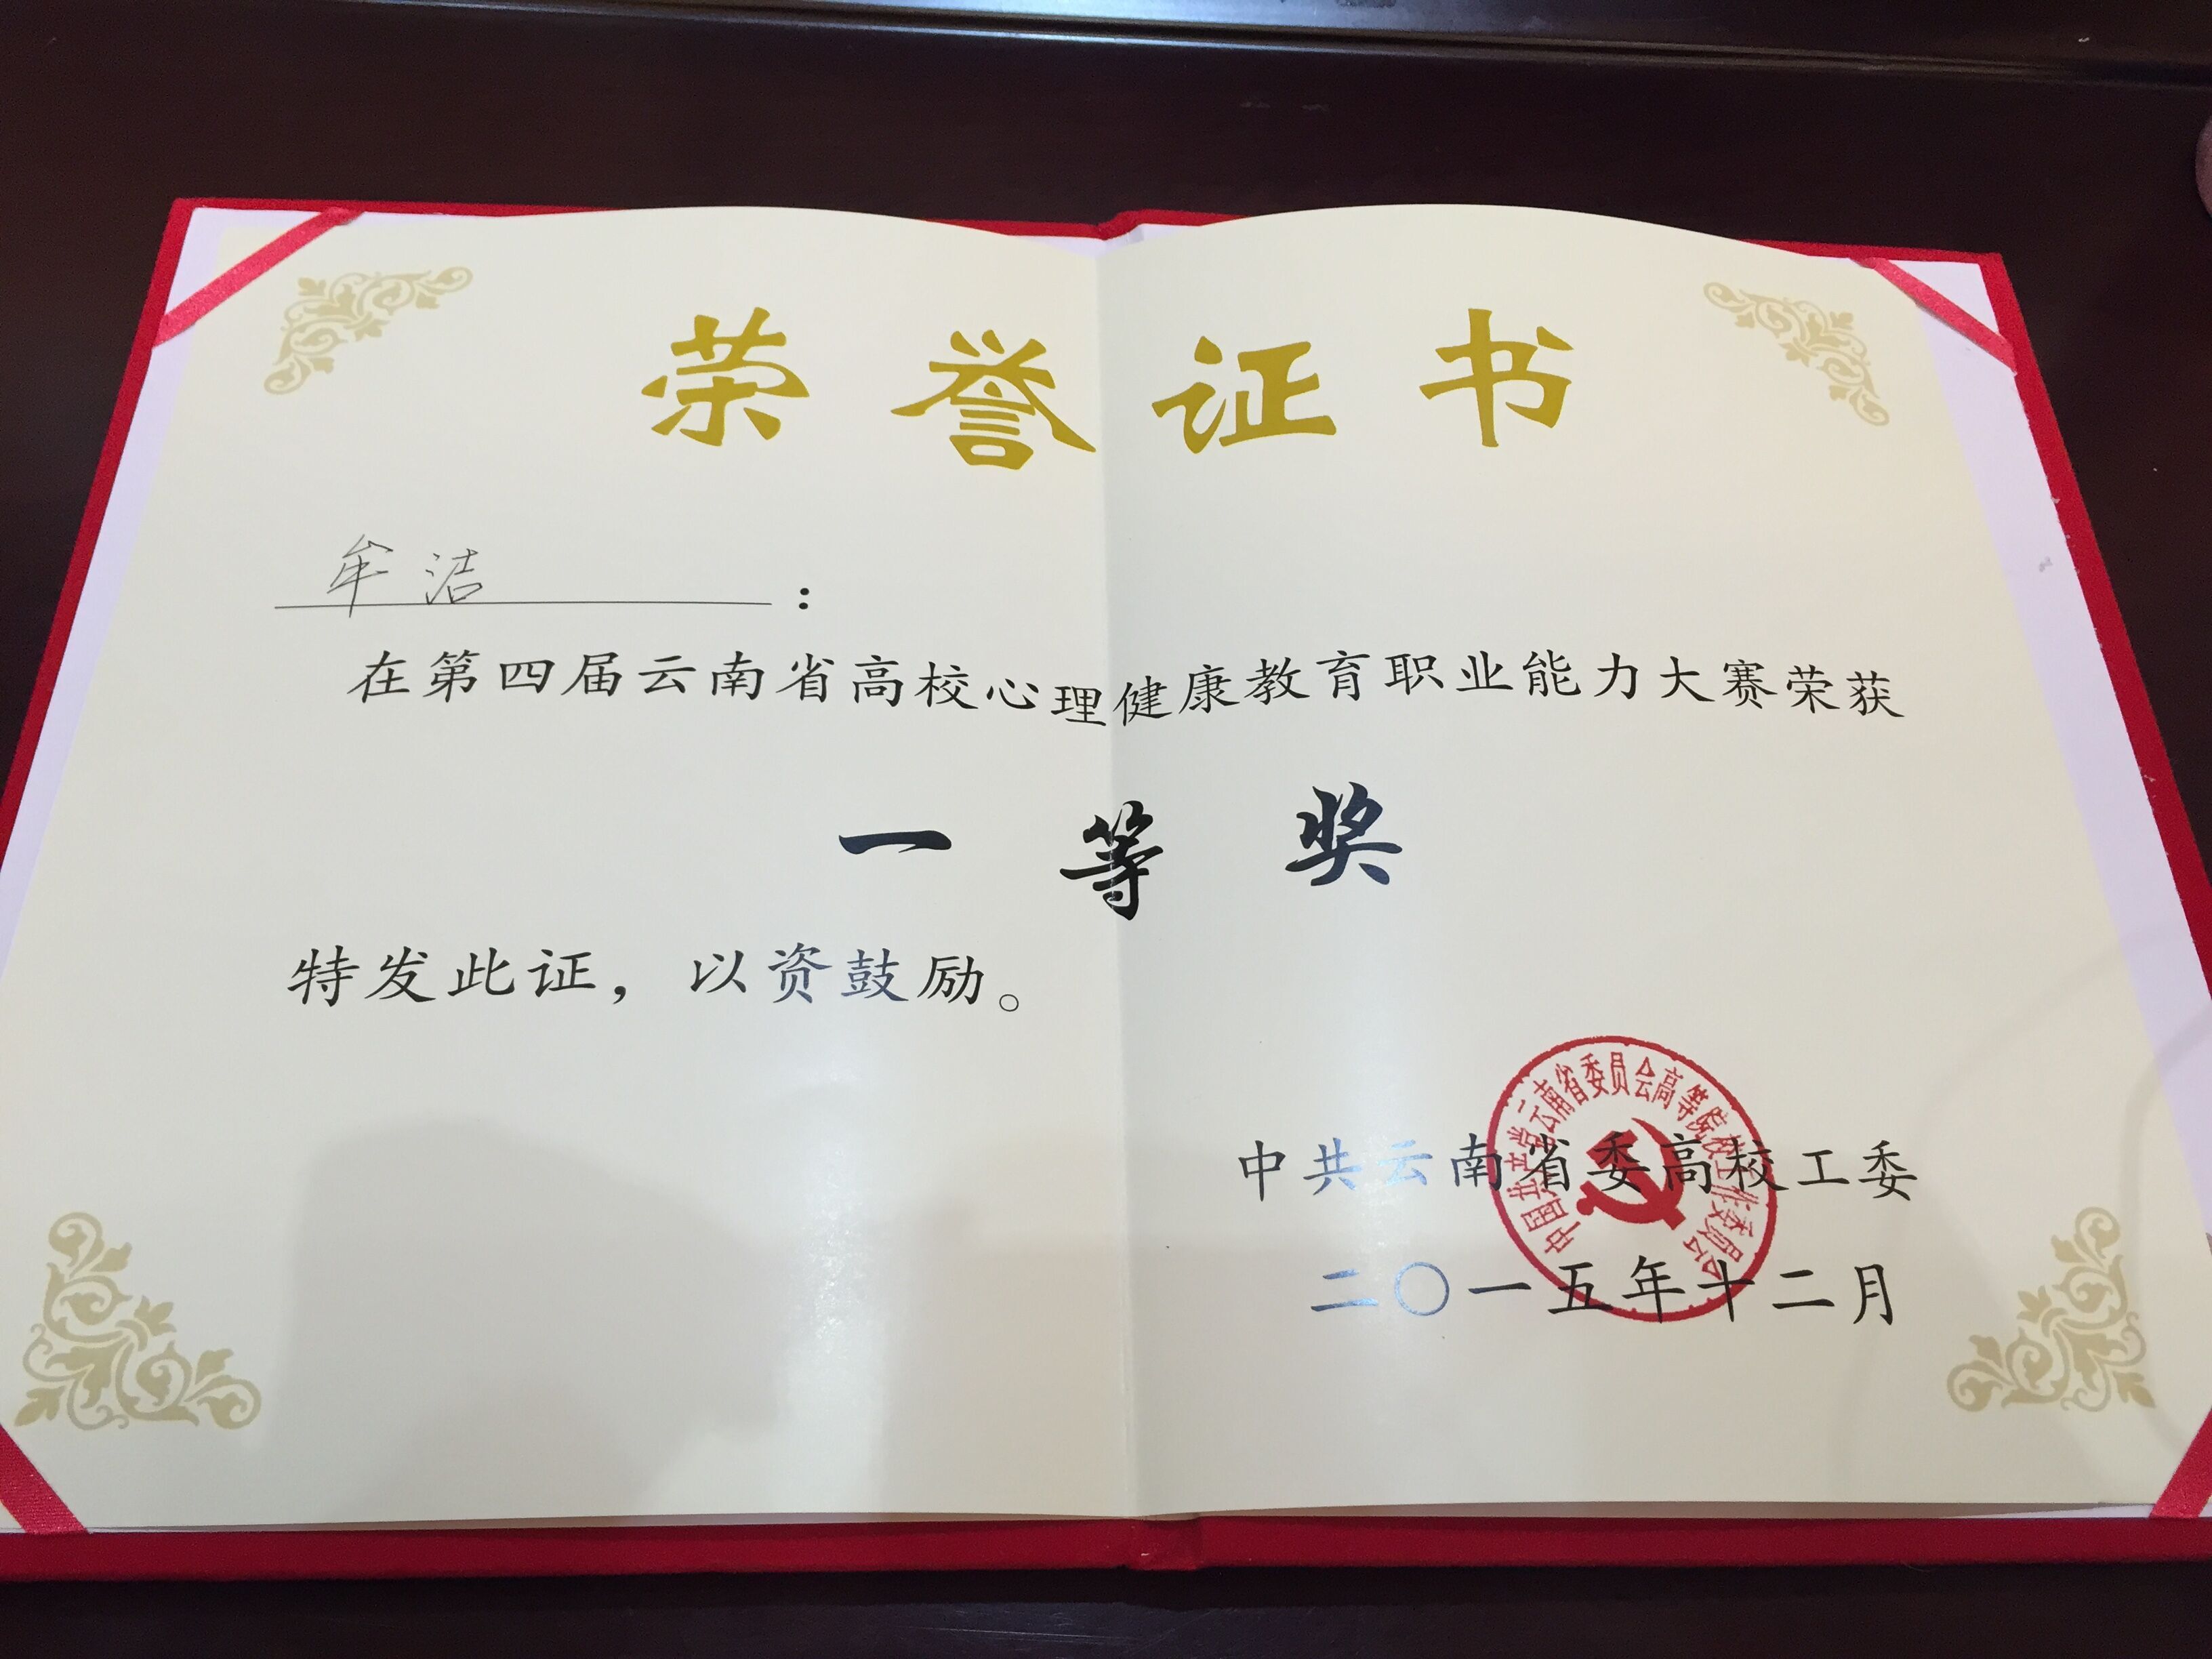 荣誉证书
牟洁：
在第四届云南省高校心理健康教育职业能力大赛荣获
一等奖
特发此证，以资鼓励。
中国共产党云南省委员会高等院校工作委员会
中共云南省委高校工委
二〇一五年十二月